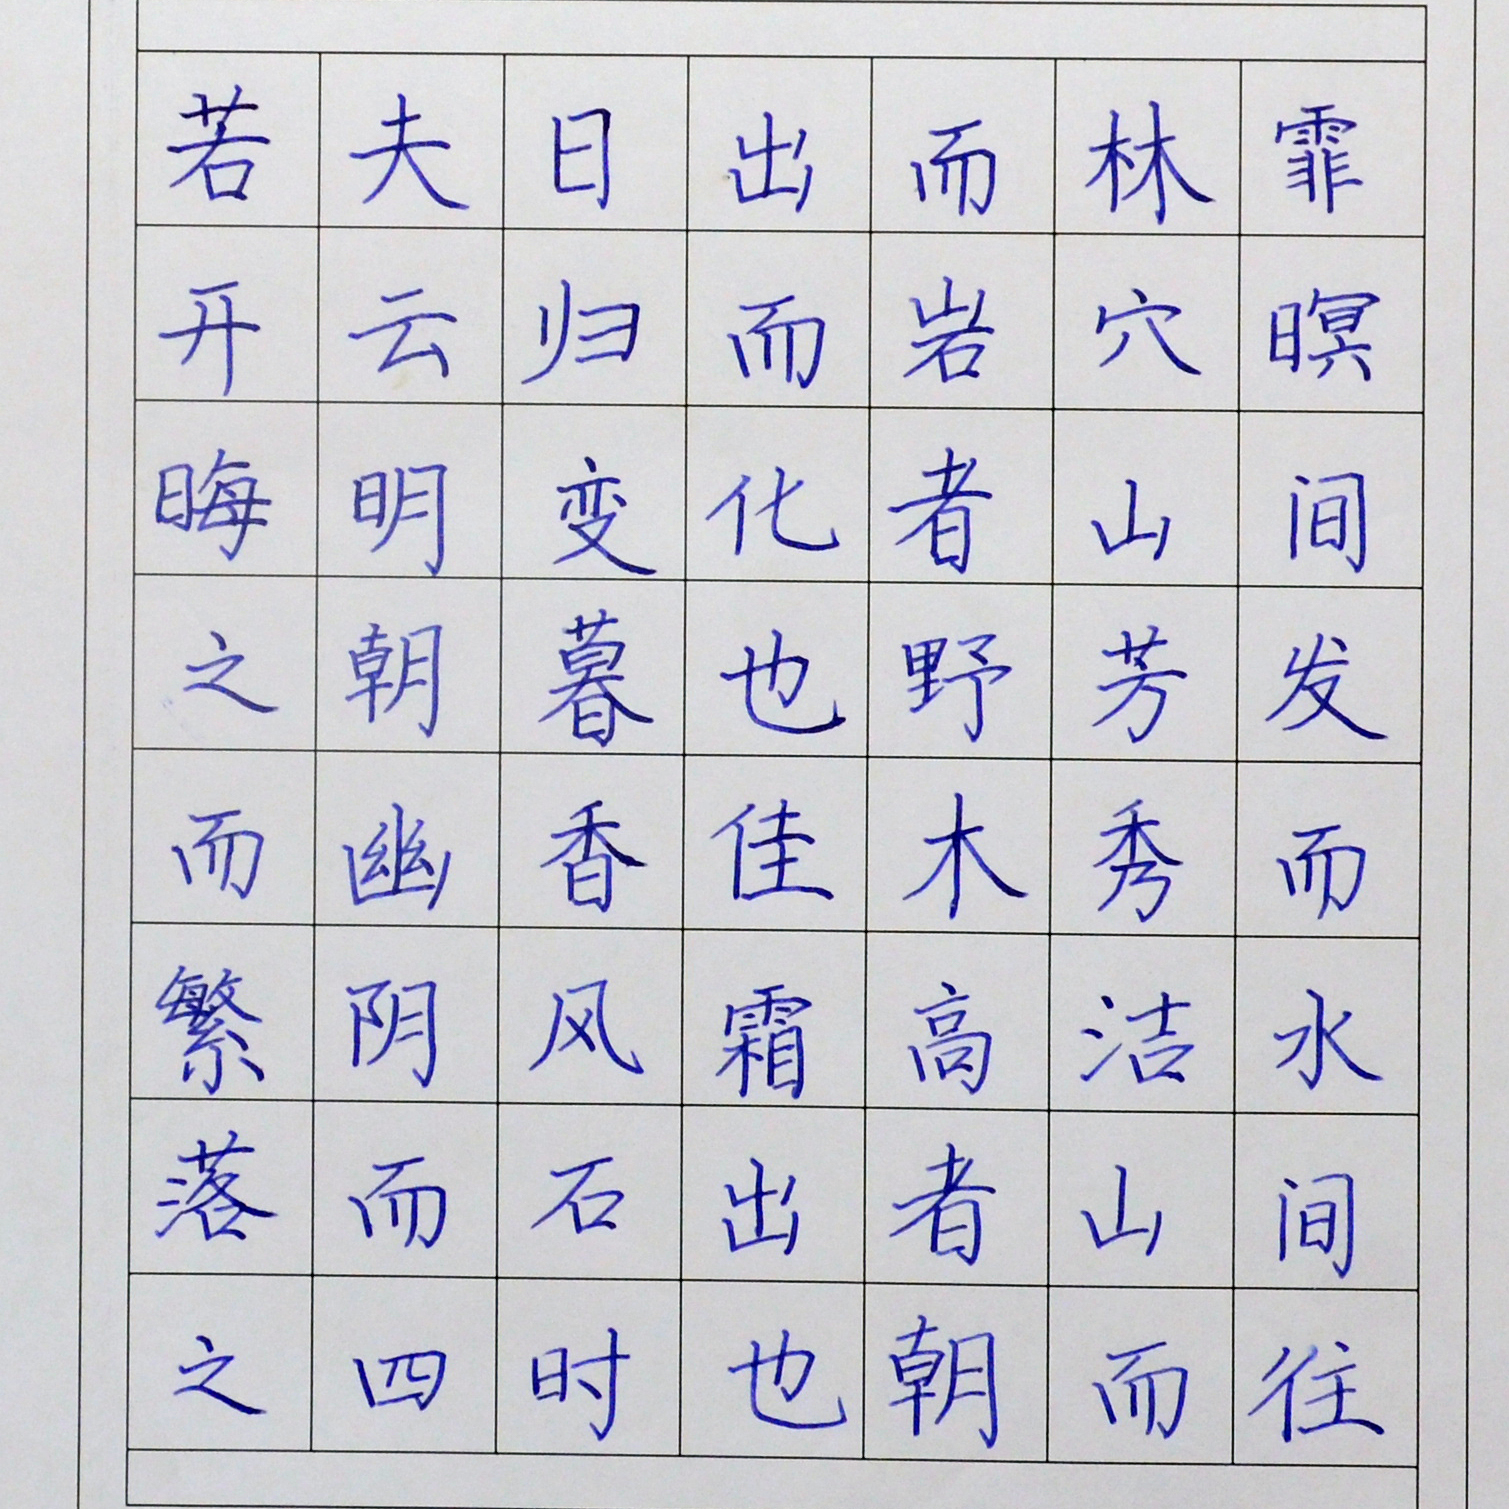 若夫日出而林霏
开云归而岩穴暝
晦明变化者山间
之朝暮也野芳发
而幽香佳木秀而
繁阴风霜高洁水
落而石出者山间
之四时也朝而往